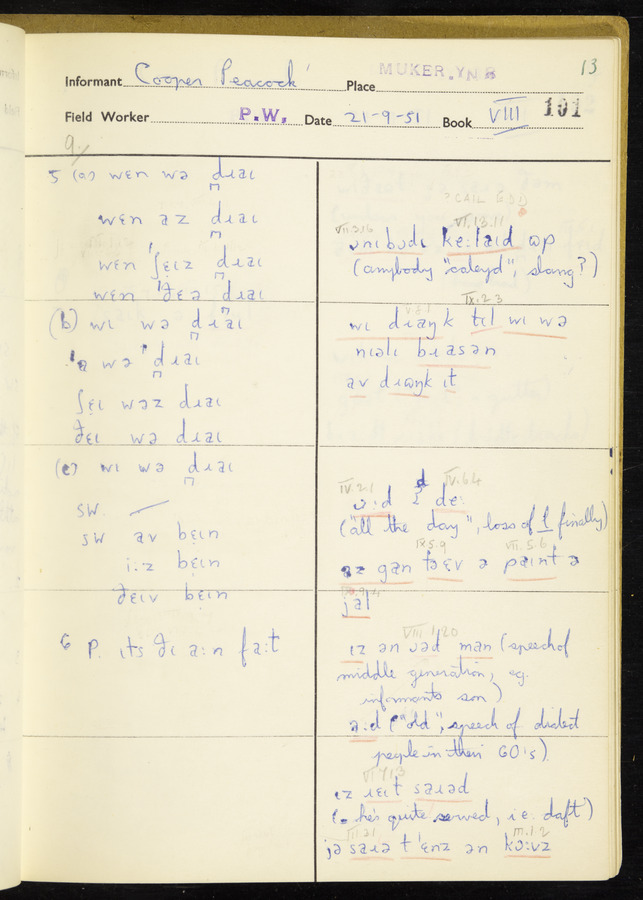 13
Informant Cooper Peacock Place MUKER, YN
Field Worker P.W. Date 21-9-51 Book VIII 101
9.
5 (a) wɛn wə dɹaɪ
wɛn az dɹaɪ
wɛn ʃɛɪz dɹaɪ
wɛn ðɛə dɹaɪ
(b) wɪ wə dɹaɪ
a wə dɹaɪ
ʃɛɪ wəz dɹaɪ
ðɛɪ wə dɹaɪ
(c) wɪ wə dɹaɪ
sw. —
sw av bɛɪn
i:z bɛɪn
ðɛɪv bɛɪn
6 P. ɪts ðɪ a:n fa:t
VI.13.11
ke:laɪd ɷp
(anybody "caleyd", slang?)
IX.2.3
wɪ dɹaŋk tɪl wɪ wə
nɪəlɪ bɹasən
av dɹɷŋk ɪt
IV.2.1
("all the day", loss of l finally)
IX.5.9 VII.5.6
gan təɛv ə paɪnt ə
jal
VIII.1.20
ɪz ən ɔəd man (speech of
middle generation, eg.
informant's son)
a:d ("old", speech of dialect
people in their 60's).
ɪz ɹɛɪt saɹəd
(= he's quite served, i.e. daft)
III.1.2
jə saɹə t' ɛnz ən kɔ:vz